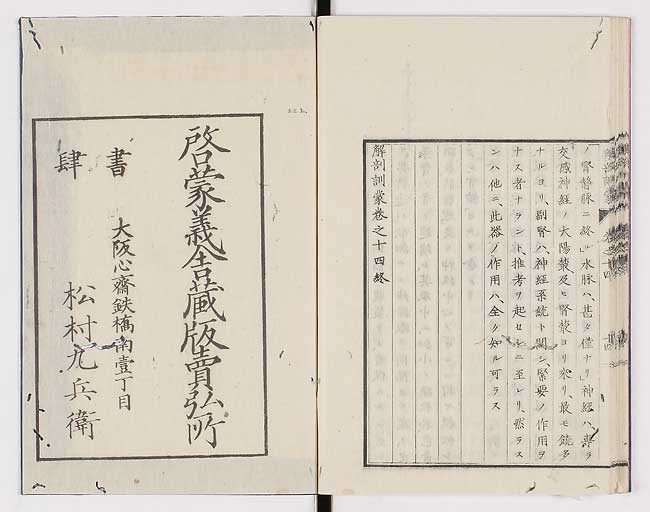 ノ腎静脉ニ終ル水脉ハ、甚タ僅ナリ」神経ハ、専ラ
交感神経ノ大陽叢及ヒ腎叢ヨリ来リ、最モ饒多
ナルヨリ、副腎ハ神経系統ト関シ、緊要ノ作用ヲ
ナス者ナラント、推考ヲ起セシニ至レリ、然ラス
ンハ他ニ、此器ノ作用ハ、全ク知ル可ラス
解剖訓蒙巻之十四終
啓蒙義舎蔵版賣弘所
大阪心齋鉄橋南壹丁目
書肆
松村九兵衛